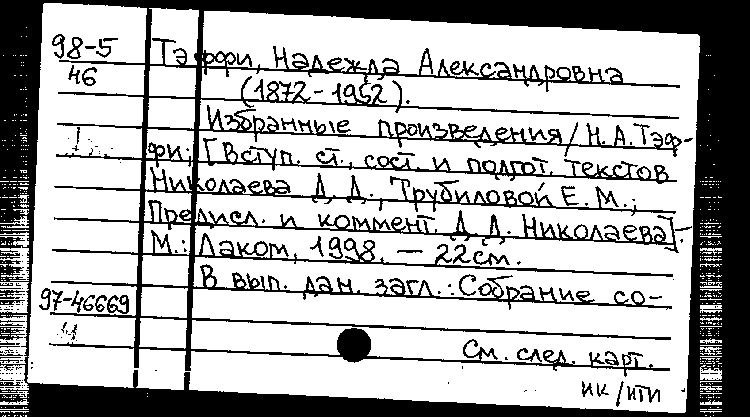 98-5
46
Тэффи, Надежда Александровна
(1872-1952).
Избранные произведения / Н. А. Тэф-
фи; [Вступ. ст., сост. и подгот. текстов
Николаева Д. Д., Трубиловой Е. М.;
Предисл. и коммент. Д. Д. Николаева].-
М.: Лаком, 1998. — 22см.
В вып. дан. загл.: Собрание со-
97-46669
Ч
См. след. карт.
ик/нти